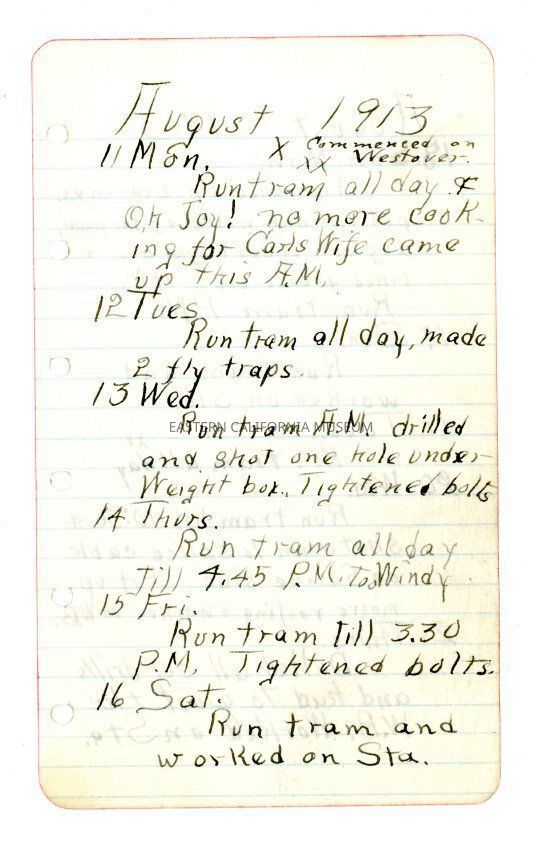 August 1913
11 Mon. X Commenced on
XX Westover.
Run tram all day &
Oh Joy! no more cook-
ing for Carls Wife came
up this A.M.
12 Tues
Run tram all day, made
2 fly traps.
13 Wed.
EASTERN CALIFORNIA MUSEUM
Run tram A.M. drilled
and shot one hole under-
Weight box. Tightened bolts
14 Thurs.
Run tram all day
Till 4.45 P.M. Too Windy
15 Fri.
Run tram Till 3.30
P.M. Tightened bolts.
16 Sat.
Run tram and
worked on Sta.